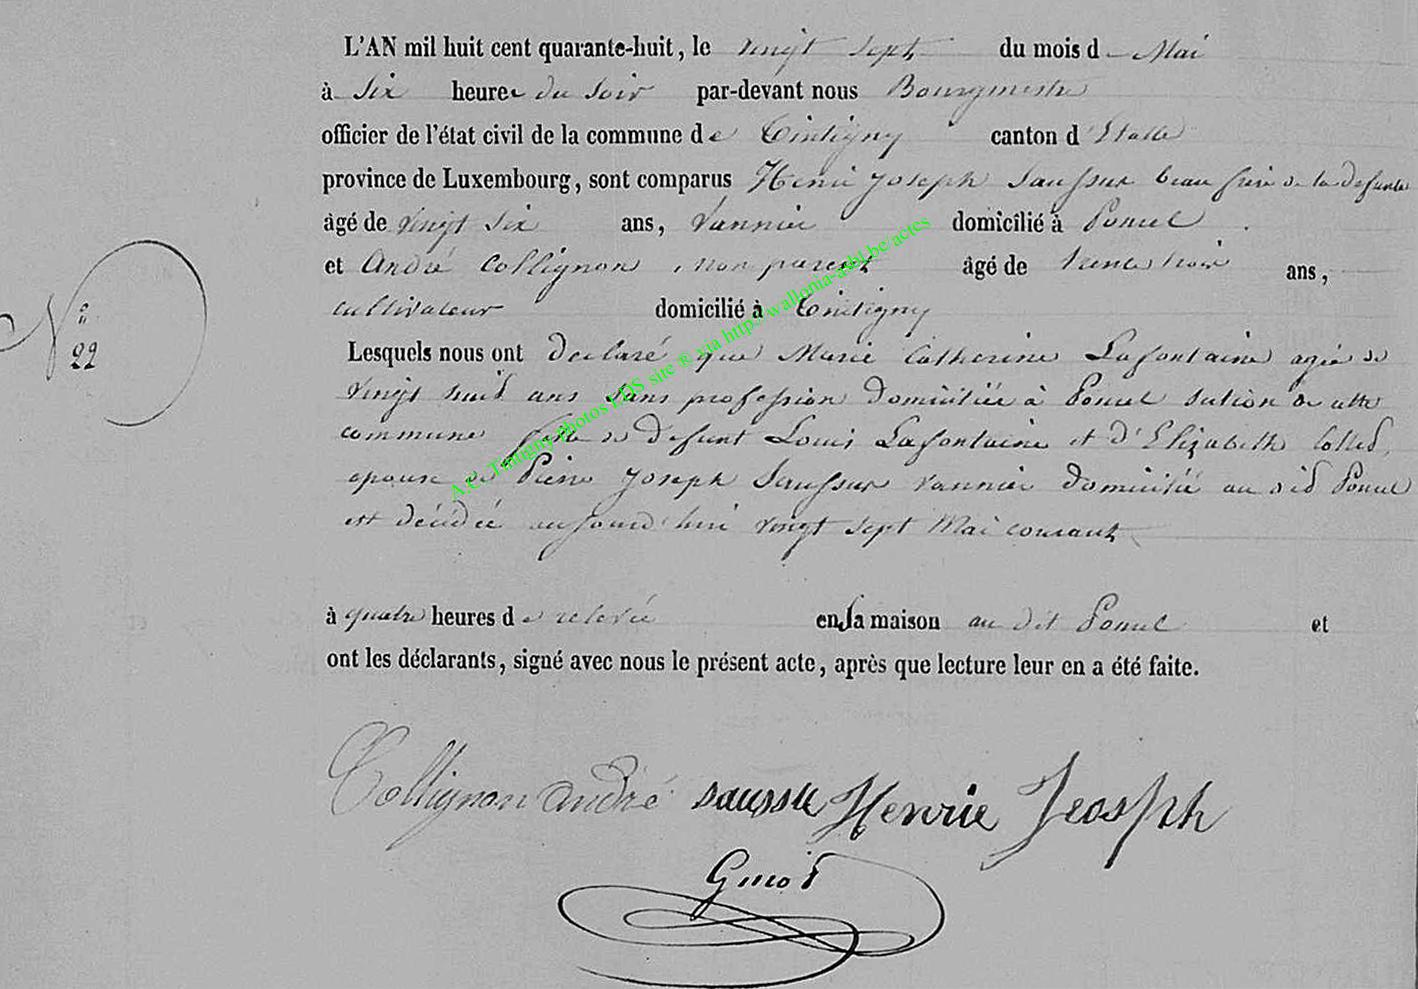 L'AN mil huit cent quarante-huit, le vingt sept du mois de Mai
à six heures du soir par-devant nous Bourgmestre
officier de l'état civil de la commune de Tintigny canton d'Etalle
province de Luxembourg, sont comparus Henri Joseph Saussus beau frère de la defunte
âgé de vingt six ans, Vannier domicilié à Poncel
et André Collignon, non parent âgé de trente trois ans,
cultivateur domicilié à Tintigny
N° 22
Lesquels nous ont declaré que Marie Catherine Lafontaine agée de
vingt huit ans sans profession domiciliée à Poncel section de cette
commune fille de défunt Louis Lafontaine et d'Elizabeth
epouse de Pierre Joseph Saussus vannier domicilié au did Poncel
est décédée aujourd'hui vingt sept Mai courant
à quatre heures de relevée en sa maison au dit Poncel et
ont les déclarants, signé avec nous le présent acte, après que lecture leur en a été faite.
Collignon andré Henrie Jeosph
A.C. Tintigny photos FDS site ® via http://wallonia-asbl.be/actes